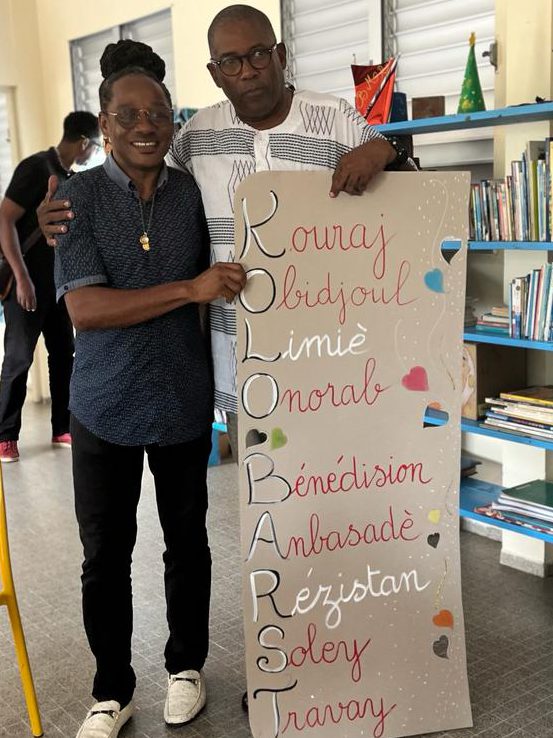 Kouraj
Obidjoul
Limiè
Onorab
Bénédision
Anbasadè
Rézistan
Soley
Travay